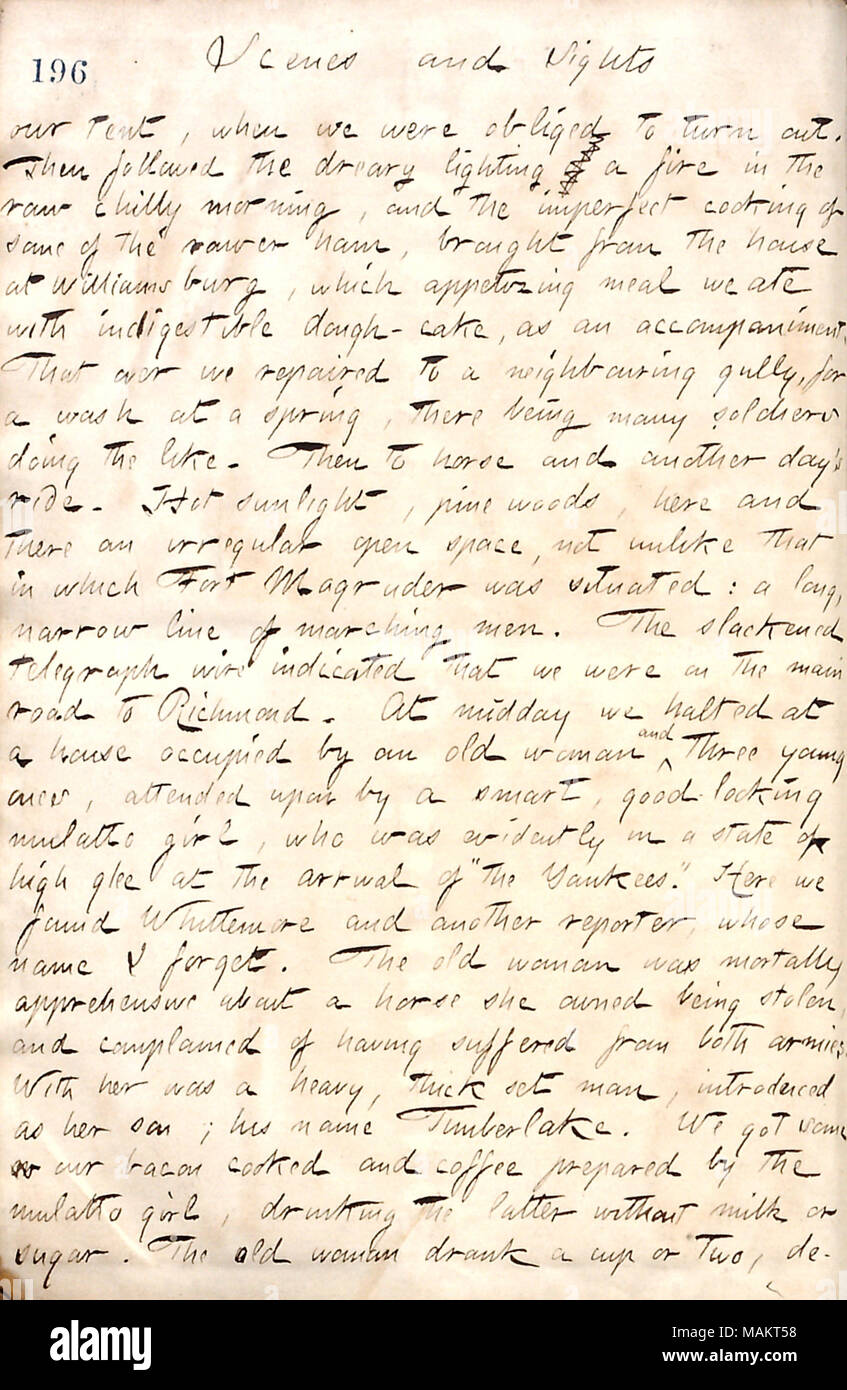 196
Scenes and Sights
our tent, when we were obliged to turn out.
Then followed the dreary lighting a fire in the
raw chilly morning, and the imperfect cooking of
some of the rawer ham, brought from the house
at Williamsburg, which appetizing meal we ate
with indigestible dough-cake, as an accompaniment.
That over we repaired to a neighbouring gully, for
a wash at a spring, there being many soldiers
doing the like. Then to horse and another day's
ride. Hot sunlight, pine woods, here and
there an irregular open space, not unlike that
in which Fort Magruder was situated: a long,
narrow line of marching men. The slackened
telegraph wire indicated that we were on the main
road to Richmond. At midday we halted at
a house occupied by an old woman and three young
ones, attended upon by a smart, good-looking
mulatto girl, who was evidently in a state of
high glee at the arrival of "the Yankees." Here we
found Whittemore and another reporter, whose
name I forget. The old woman was mortally
apprehensive about a horse she owned being stolen,
and complained of having suffered from both armies.
With her was a heavy, thick set man, introduced
as her son; his name Timberlake. We got some
our bacon cooked and coffee prepared by the
mulatto girl, drinking the latter without milk or
sugar. The old woman drank a cup or two, de-
alamy
Image ID: MAKT58
www.alamy.com